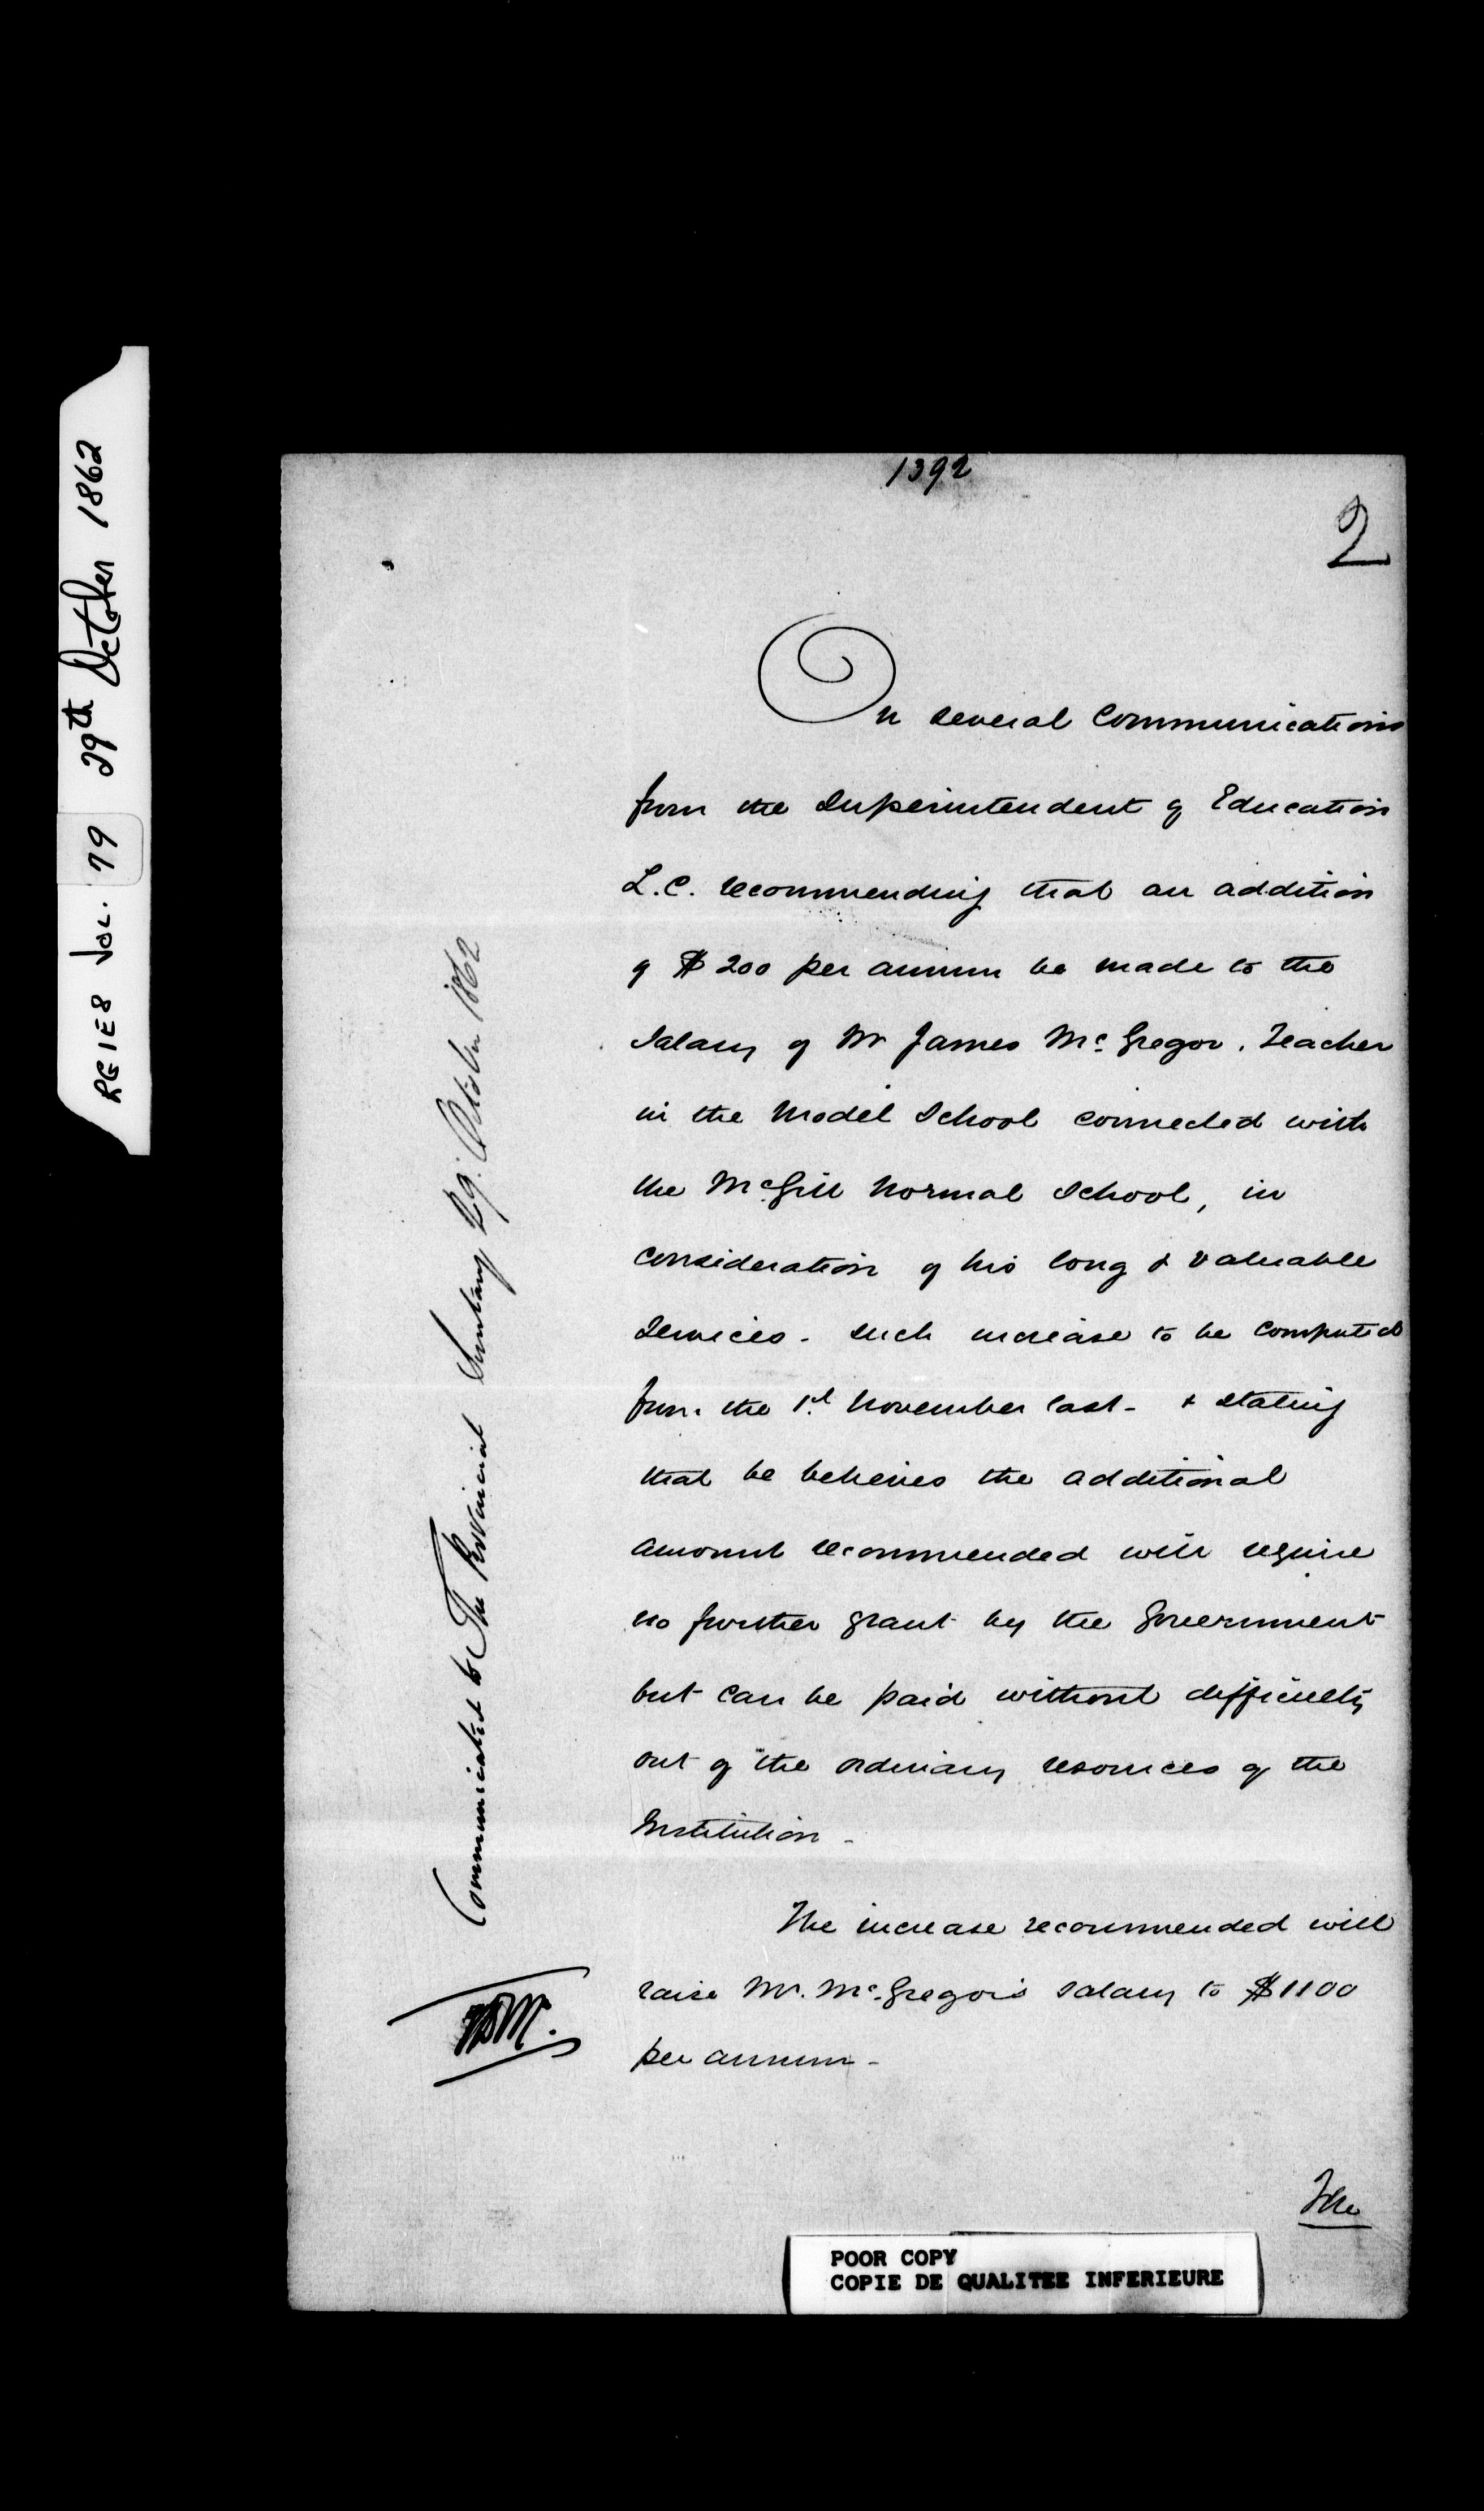 RG 1 E 8 Vol. 79 29th October 1862
1392
2
On several Communications
from the Superintendent of Education
L.C. recommending that an addition
of $200 per annum be made to the
Salary of Mr James McGregor. Teacher
in the Model School connected with
the McGill Normal School, in
consideration of his long & valuable
Services - such increase to be computed
from the 1st November last - & stating
that he believes the additional
amount recommended will require
no further grant by the Government
but can be paid without difficulty
out of the ordinary resources of the
Institution -
The increase recommended will
raise Mr. McGregor's salary to $1100
per annum -
Communicated to The Provincial Secretary 29. October 1862
The
POOR COPY
COPIE DE QUALITEE INFERIEURE